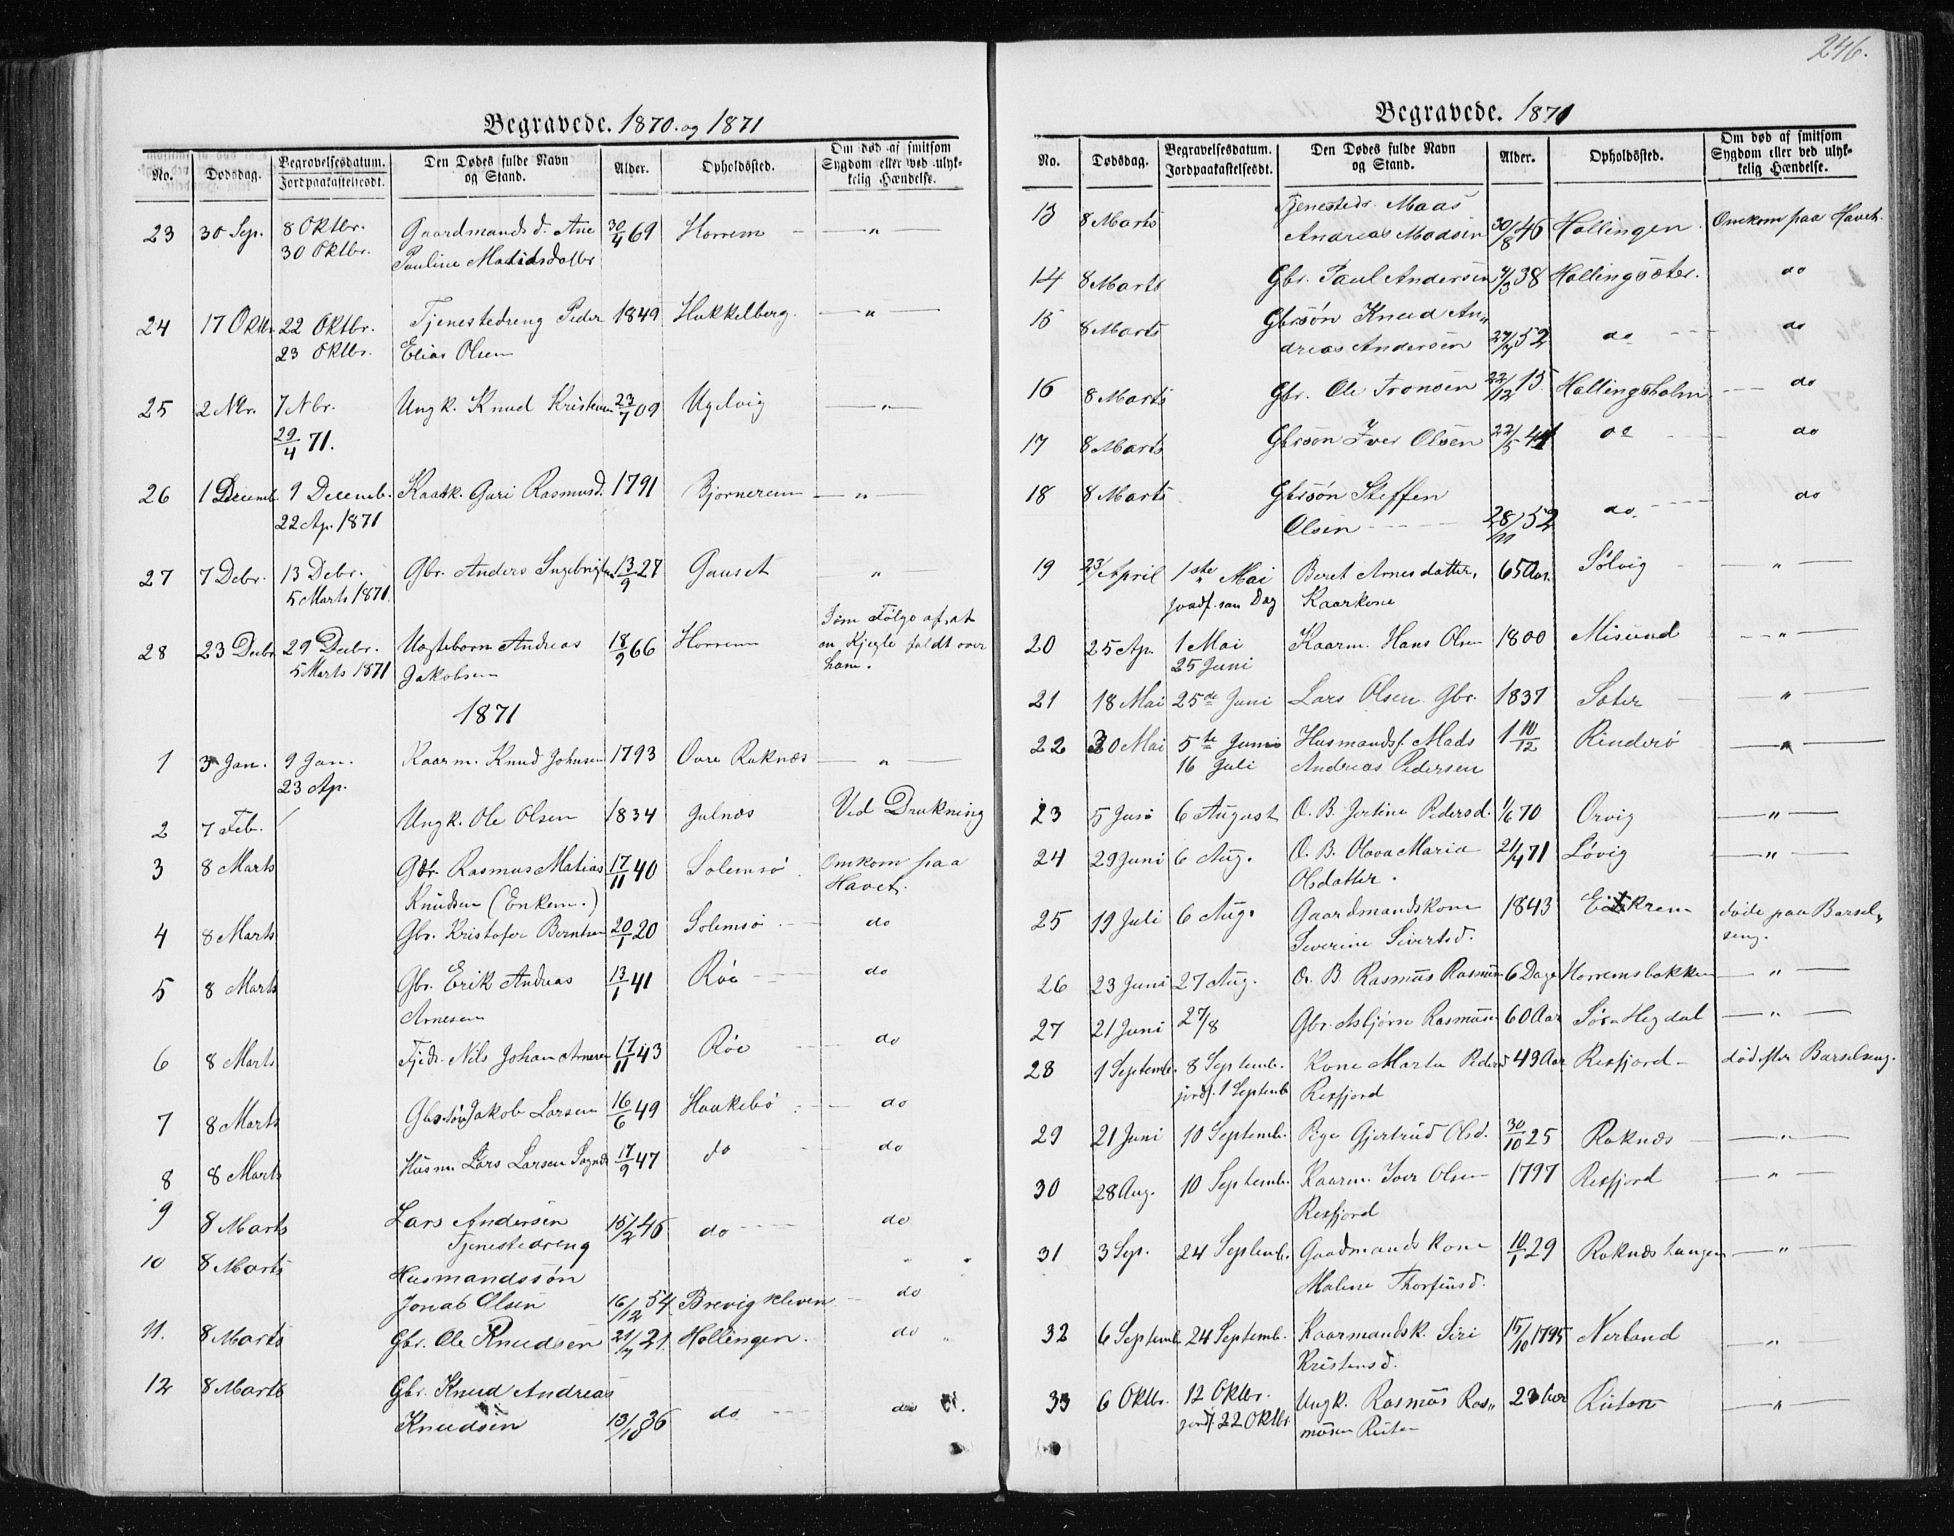 Begravede. 1870. og 1871
No. Dødsdag. Begravelsesdatum. Jordpaakastelsesdt. Den Dødes fulde Navn og Stand. Alder. Opholdssted. Om død af smitsom Sygdom eller ved ulykkelig Hændelse.
23 30 Sep. 8 Oktbr. Gaardmands d. Ane 30/4 69 Horrem — " —
30 Oktbr. Pauline
24 17 Oktbr. 22 Oktbr. Tjenestedreng Peder 1849 Hukkelberg. — " —
23 Oktbr. Elias Olsen
25 2 Nbr. 7 Nbr. Ungk. Knud Kristensen 23/7 09 Ugelvig — " —
29/4 71.
26 1 Decemb. 9 Decemb. Kaark. Guri Rasmusd. 1791 Bjørnerem — " —
22 Ap. 1871
27 7 Debr. 13 Debr. Gbr. Anders Ingebrigtsen 13/9 27 Gauset " —
5 Marts 1871.
28 23 Debr 29 Debr. Andreas 18/9 66 Horrem Som Følge af, at
5 Marts 1871 Jakobsen en Kjegle faldt over
ham.
1871
1 3 Jan. 9 Jan. Kaarm. Knud Johnsen 1793 Øvre Raknæs — " —
23 Ap.
2 7 Feb. Ungk. Ole Olsen 1834 Julnæs Ved Drukning
3 8 Marts Gbr. Rasmus Matias 17/11 40 Solemsø Omkom paa
Knudsen (Enkem.) Havet.
4 8 Marts Gbr. Kristofer Berntsen 20/1 20 Solemsø do
5 8 Marts Gbr. Erik Andreas 13/1 41 Røe do
Arnesen
6 8 Marts Tjedr. Nils Johan Arnesen 17/11 43 Røe do
7 8 Marts Gbrsøn Jakob Larsen 16/6 49 Haukebø do
8 8 Marts Husm. Lars Larsen 17/9 47 do do
9 8 Marts Lars Andersen 15/2 46 do do
Tjenestedreng
10 8 Marts Husmandssøn
Jonas Olsen 16/12 54 Brevigkleven do
11. 8 Marts Gbr. Ole Knudsen 21/7 21 Hollingen. do
12 8 Marts Gbr. Knud Andreas
Knudsen 13/10 36 do do
246.
Begravede. 1871
No. Dødsdag. Begravelsesdatum. Jordpaakastelsesdt. Den Dødes fulde Navn og Stand. Alder. Opholdssted. Om død af smitsom Sygdom eller ved ulykkelig Hændelse.
13 8 Marts Tjenestedr. Maas
Andreas Madsen 30/8 46 Hollingen. Omkom paa Havet.
14 8 Marts Gbr. Paul Andersen 4/3 38 Hollingsæter. do
15 8 Marts Gbrsøn Knud An-
dreas Andersen 27/7 52 do do
16 8 Marts Gbr. Ole Tronsen 22/12 15 Hollingsholm do
17 8 Marts Gbrsøn Iver Olsen 22/5 41 do do
18 8 Marts Gbrsøn Steffen
Olsen 28/11 52 do. do
19 23/April 1ste Mai Beret Arnesdatter, 65 Aar. Sølvig — " —
jordf. sam Dag Kaarkone
20 25 Ap. 1 Mai Kaarm. Hans Olsen 1800 Misund — " —
25 Juni
21 18 Mai 25de Juni Lars Olsen Gbr. 1837 Sæter — " —
22 30 Mai 5te Juni Husmandsf. Mads 1 10/12 Rinderø — " —
16 Juli Andreas Pedersen
23 5 Juni 6 August O. B. Jertine Pedersd. 1/6 70 Orvig — " —
24 29 Juni 6 Aug. O. B. Olava Maria 21/4 71 Løvig — " —
Olsdatter.
25 19 Juli 6 Aug. Gaardmandskone 1843 Eikrem døde paa Barsel-
Severine Sivertsd. seng.
26 23 Juni 27 Aug. O. B. Rasmus Rasmussen 6 Dage Horremsbakken — " —
27 21 Juni 27/8 Gbr. Asbjørn Rasmussen 60 Aar Sør-Hegdal — " —
28 1 Septemb. 8 Septemb. Kone Marta Pedersd 43 Aar Rexfjord død efter Barselseng.
jordf. 1 Septemb Rexfjord
29 21 Juni 10 Septemb. Pige Gjertrud Olsd. 30/10 25 Raknæs — " —
30 28 Aug. 10 Septemb. Kaarm. Iver Olsen 1797 Rexfjord — " —
Rexfjord
31 3 Sep. 24 Septemb. Gaadmands kone 10/1 29 Raknæstangen — " —
Malene Thorfinsd.
32 6 Septemb 24 Septemb. Kaarmandsk. Siri 15/10 1795 Nerland "
Kristensd.
33 6 Oktbr. 12 Oktbr. Ungk. Rasmus Ras- 23 Aar Riiten — " —
jordf. 22 Oktbr mussen Riiten